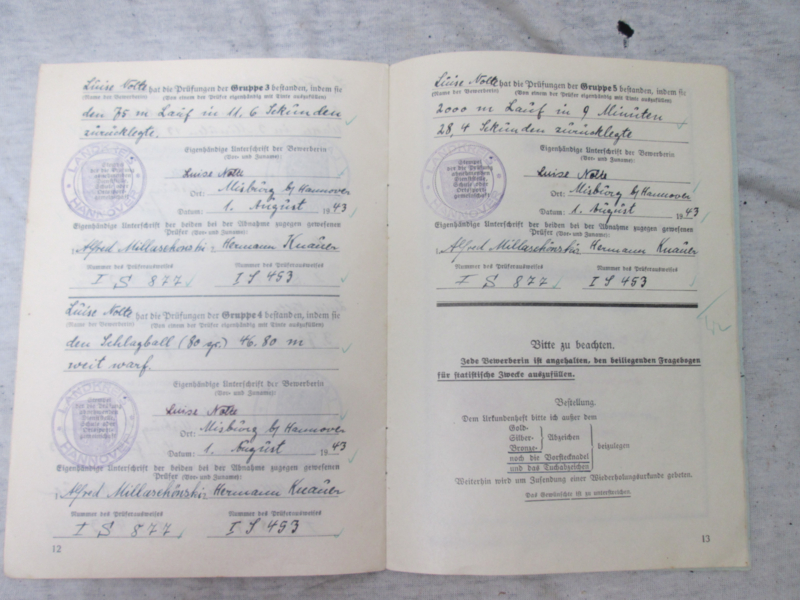 Luise Nolte hat die Prüfungen der Gruppe 3 bestanden, indem sie
(Name der Bewerberin) (Von einem der Prüfer eigenhändig mit Tinte auszufüllen)
den 75 m Lauf in 11,6 Sekunden
zurücklegte.
Eigenhändige Unterschrift der Bewerberin
(Vor- und Zuname):
Luise Nolte
Ort: Misburg b/Hannover
Datum: 1. August 1943
LANDKREIS HANNOVER
Eigenhändige Unterschrift der beiden bei der Abnahme zugegen gewesenen
Prüfer (Vor- und Zuname):
Hermann Knauer
Nummer des Prüferausweises Nummer des Prüferausweises
I S 877 I S 453
Luise Nolte hat die Prüfungen der Gruppe 4 bestanden, indem sie
(Name der Bewerberin) (Von einem der Prüfer eigenhändig mit Tinte auszufüllen)
den Schlagball (80 gr.) 46.80 m
weit warf.
Eigenhändige Unterschrift der Bewerberin
(Vor- und Zuname):
Luise Nolte
Ort: Misburg b/Hannover
Datum: 1. August 1943
LANDKREIS HANNOVER
Eigenhändige Unterschrift der beiden bei der Abnahme zugegen gewesenen
Prüfer (Vor- und Zuname):
Hermann Knauer
Nummer des Prüferausweises Nummer des Prüferausweises
I S 877 I S 453
12
Luise Nolte hat die Prüfungen der Gruppe 5 bestanden, indem sie
(Name der Bewerberin) (Von einem der Prüfer eigenhändig mit Tinte auszufüllen)
2000 m Lauf in 9 Minuten
28,4 Sekunden zurücklegte
Eigenhändige Unterschrift der Bewerberin
(Vor- und Zuname):
Luise Nolte
Ort: Misburg b/Hannover
Datum: 1. August 1943
LANDKREIS HANNOVER
Eigenhändige Unterschrift der beiden bei der Abnahme zugegen gewesenen
Prüfer (Vor- und Zuname):
Hermann Knauer
Nummer des Prüferausweises Nummer des Prüferausweises
I S 877 I S 453
Bitte zu beachten.
Jede Bewerberin ist angehalten, den beiliegenden Fragebogen
für statistische Zwecke auszufüllen.
Bestellung.
Dem Urkundenheft bitte ich außer dem
Gold-
Silber- Abzeichen
Bronze- beizulegen
noch die Vorstecknadel
und das Tuchabzeichen
Weiterhin wird um Zusendung einer Wiederholungsurkunde gebeten.
Das Gewünschte ist zu unterstreichen.
13